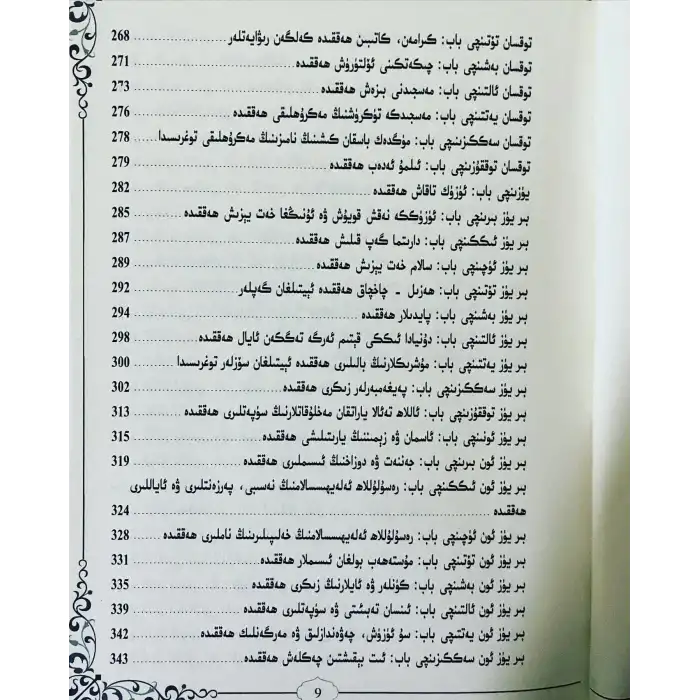 توقسان تۆتىنچى باب: كىرامەن، كاتىبىن ھەققىدە كەلگەن رىۋايەتلەر........................268
توقسان بەشىنچى باب: چىكەتكىنى ئۆلتۈرۈش ھەققىدە........................271
توقسان ئالتىنچى باب: مەسجىدنى بېزەش ھەققىدە........................273
توقسان يەتتىنچى باب: مەسجىدكە تۈكۈرۈشنىڭ مەكرۇھلىقى ھەققىدە........................276
توقسان سەككىزىنچى باب: مۈگدەك باسقان كىشىنىڭ نامىزىنىڭ مەكرۇھلىقى توغرىسىدا........278
توقسان توققۇزىنچى باب: ئىلمۇ ئەدەب ھەققىدە........................279
يۈزىنچى باب: ئۈزۈك تاقاش ھەققىدە........................282
بىر يۈز بىرىنچى باب: ئۈزۈككە نەقىش قويۇش ۋە ئۇنىڭغا خەت يېزىش ھەققىدە................285
بىر يۈز ئىككىنچى باب: دارىتما گەپ قىلىش ھەققىدە........................287
بىر يۈز ئۈچىنچى باب: سالام خەت يېزىش ھەققىدە........................289
بىر يۈز تۆتىنچى باب: ھەزىل - چاخچاق ھەققىدە ئېيتىلغان گەپلەر........................292
بىر يۈز بەشىنچى باب: پايدىلار ھەققىدە........................294
بىر يۈز ئالتىنچى باب: دۇنيادا ئىككى قېتىم ئەرگە تەگكەن ئايال ھەققىدە................298
بىر يۈز يەتتىنچى باب: مۇشرىكلارنىڭ بالىلىرى ھەققىدە ئېيتىلغان سۆزلەر توغرىسىدا........300
بىر يۈز سەككىزىنچى باب: پەيغەمبەرلەر زىكرى ھەققىدە........................302
بىر يۈز توققۇزىنچى باب: ئاللاھ تەئالا ياراتقان مەخلۇقاتلارنىڭ سۈپەتلىرى ھەققىدە........313
بىر يۈز ئونىنچى باب: ئاسمان ۋە زېمىننىڭ يارىتىلىشى ھەققىدە........................315
بىر يۈز ئون بىرىنچى باب: جەننەت ۋە دوزاخنىڭ ئىسىملىرى ھەققىدە........................319
بىر يۈز ئون ئىككىنچى باب: رەسۇلۇللاھ ئەلەيھىسسالامنىڭ نەسىبى، پەرزەنتلىرى ۋە ئاياللىرى
ھەققىدە........................324
بىر يۈز ئون ئۈچىنچى باب: رەسۇلۇللاھ ئەلەيھىسسالامنىڭ خەلىپىلىرىنىڭ ناملىرى ھەققىدە........328
بىر يۈز ئون تۆتىنچى باب: مۇستەھەب بولغان ئىسىملار ھەققىدە........................331
بىر يۈز ئون بەشىنچى باب: كۈنلەر ۋە ئايلارنىڭ زىكرى ھەققىدە........................335
بىر يۈز ئون ئالتىنچى باب: ئىنسان تەبىئىتى ۋە سۈپەتلىرى ھەققىدە........................339
بىر يۈز ئون يەتتىنچى باب: سۇ ئۈزۈش، چەۋەندازلىق ۋە مەرگەنلىك ھەققىدە................342
بىر يۈز ئون سەككىزىنچى باب: ئىت بېقىشتىن چەكلەش ھەققىدە........................343
9